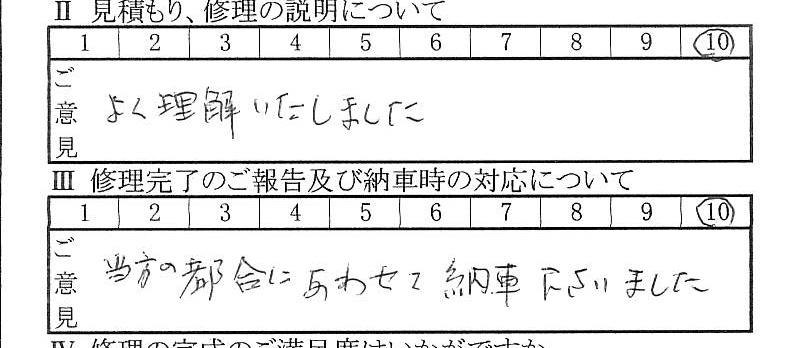 Ⅱ 見積もり、修理の説明について
1 2 3 4 5 6 7 8 9 10
ご意見
よく理解いたしました
Ⅲ 修理完了のご報告及び納車時の対応について
1 2 3 4 5 6 7 8 9 10
ご意見
当方の都合にあわせて納車下さいました
Ⅳ 修理の完成のご満足度はいかがですか